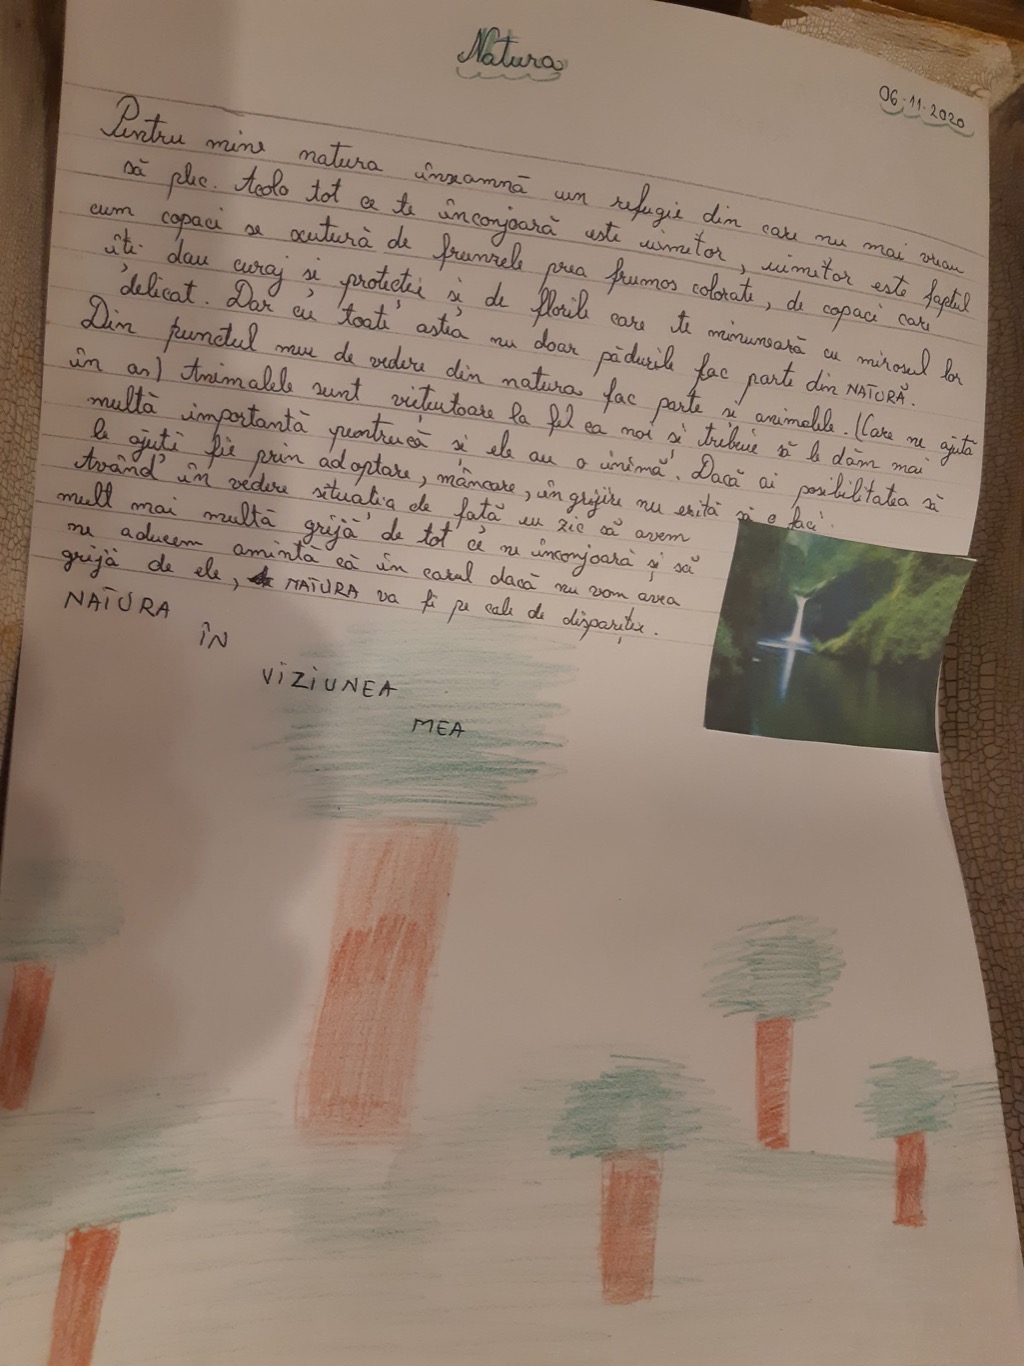 Natura
06.11.2020
Pentru mine natura înseamnă un refugie din care nu mai vreau
să plec. Acolo tot ce te înconjoară este uimitor, uimitor este faptul
cum copaci se scutură de frunzele prea frumos colorate, de copaci care
îți dau curaj și protecție și de florile care te minunează cu mirosul lor
delicat. Dar cu toate astea nu doar pădurile fac parte din NATURĂ.
Din punctul meu de vedere din natura fac parte și animalele. (Care ne ajută
în an) Animalele sunt viețuitoare la fel ca noi și trebuie să le dăm mai
multă importantă pentrucă și ele au o inimă. Dacă ai posibilitatea să
le ajuți fie prin adoptare, mâncare, îngrijire nu ezită să o faci.
Având în vedere situația de față eu zic să avem
mult mai multă grijă de tot ce ne înconjoară și să
ne aducem amintă că în cazul dacă nu vom avea
grijă de ele, NATURA va fi pe cale de dispariție.
NATURA
ÎN
VIZIUNEA
MEA